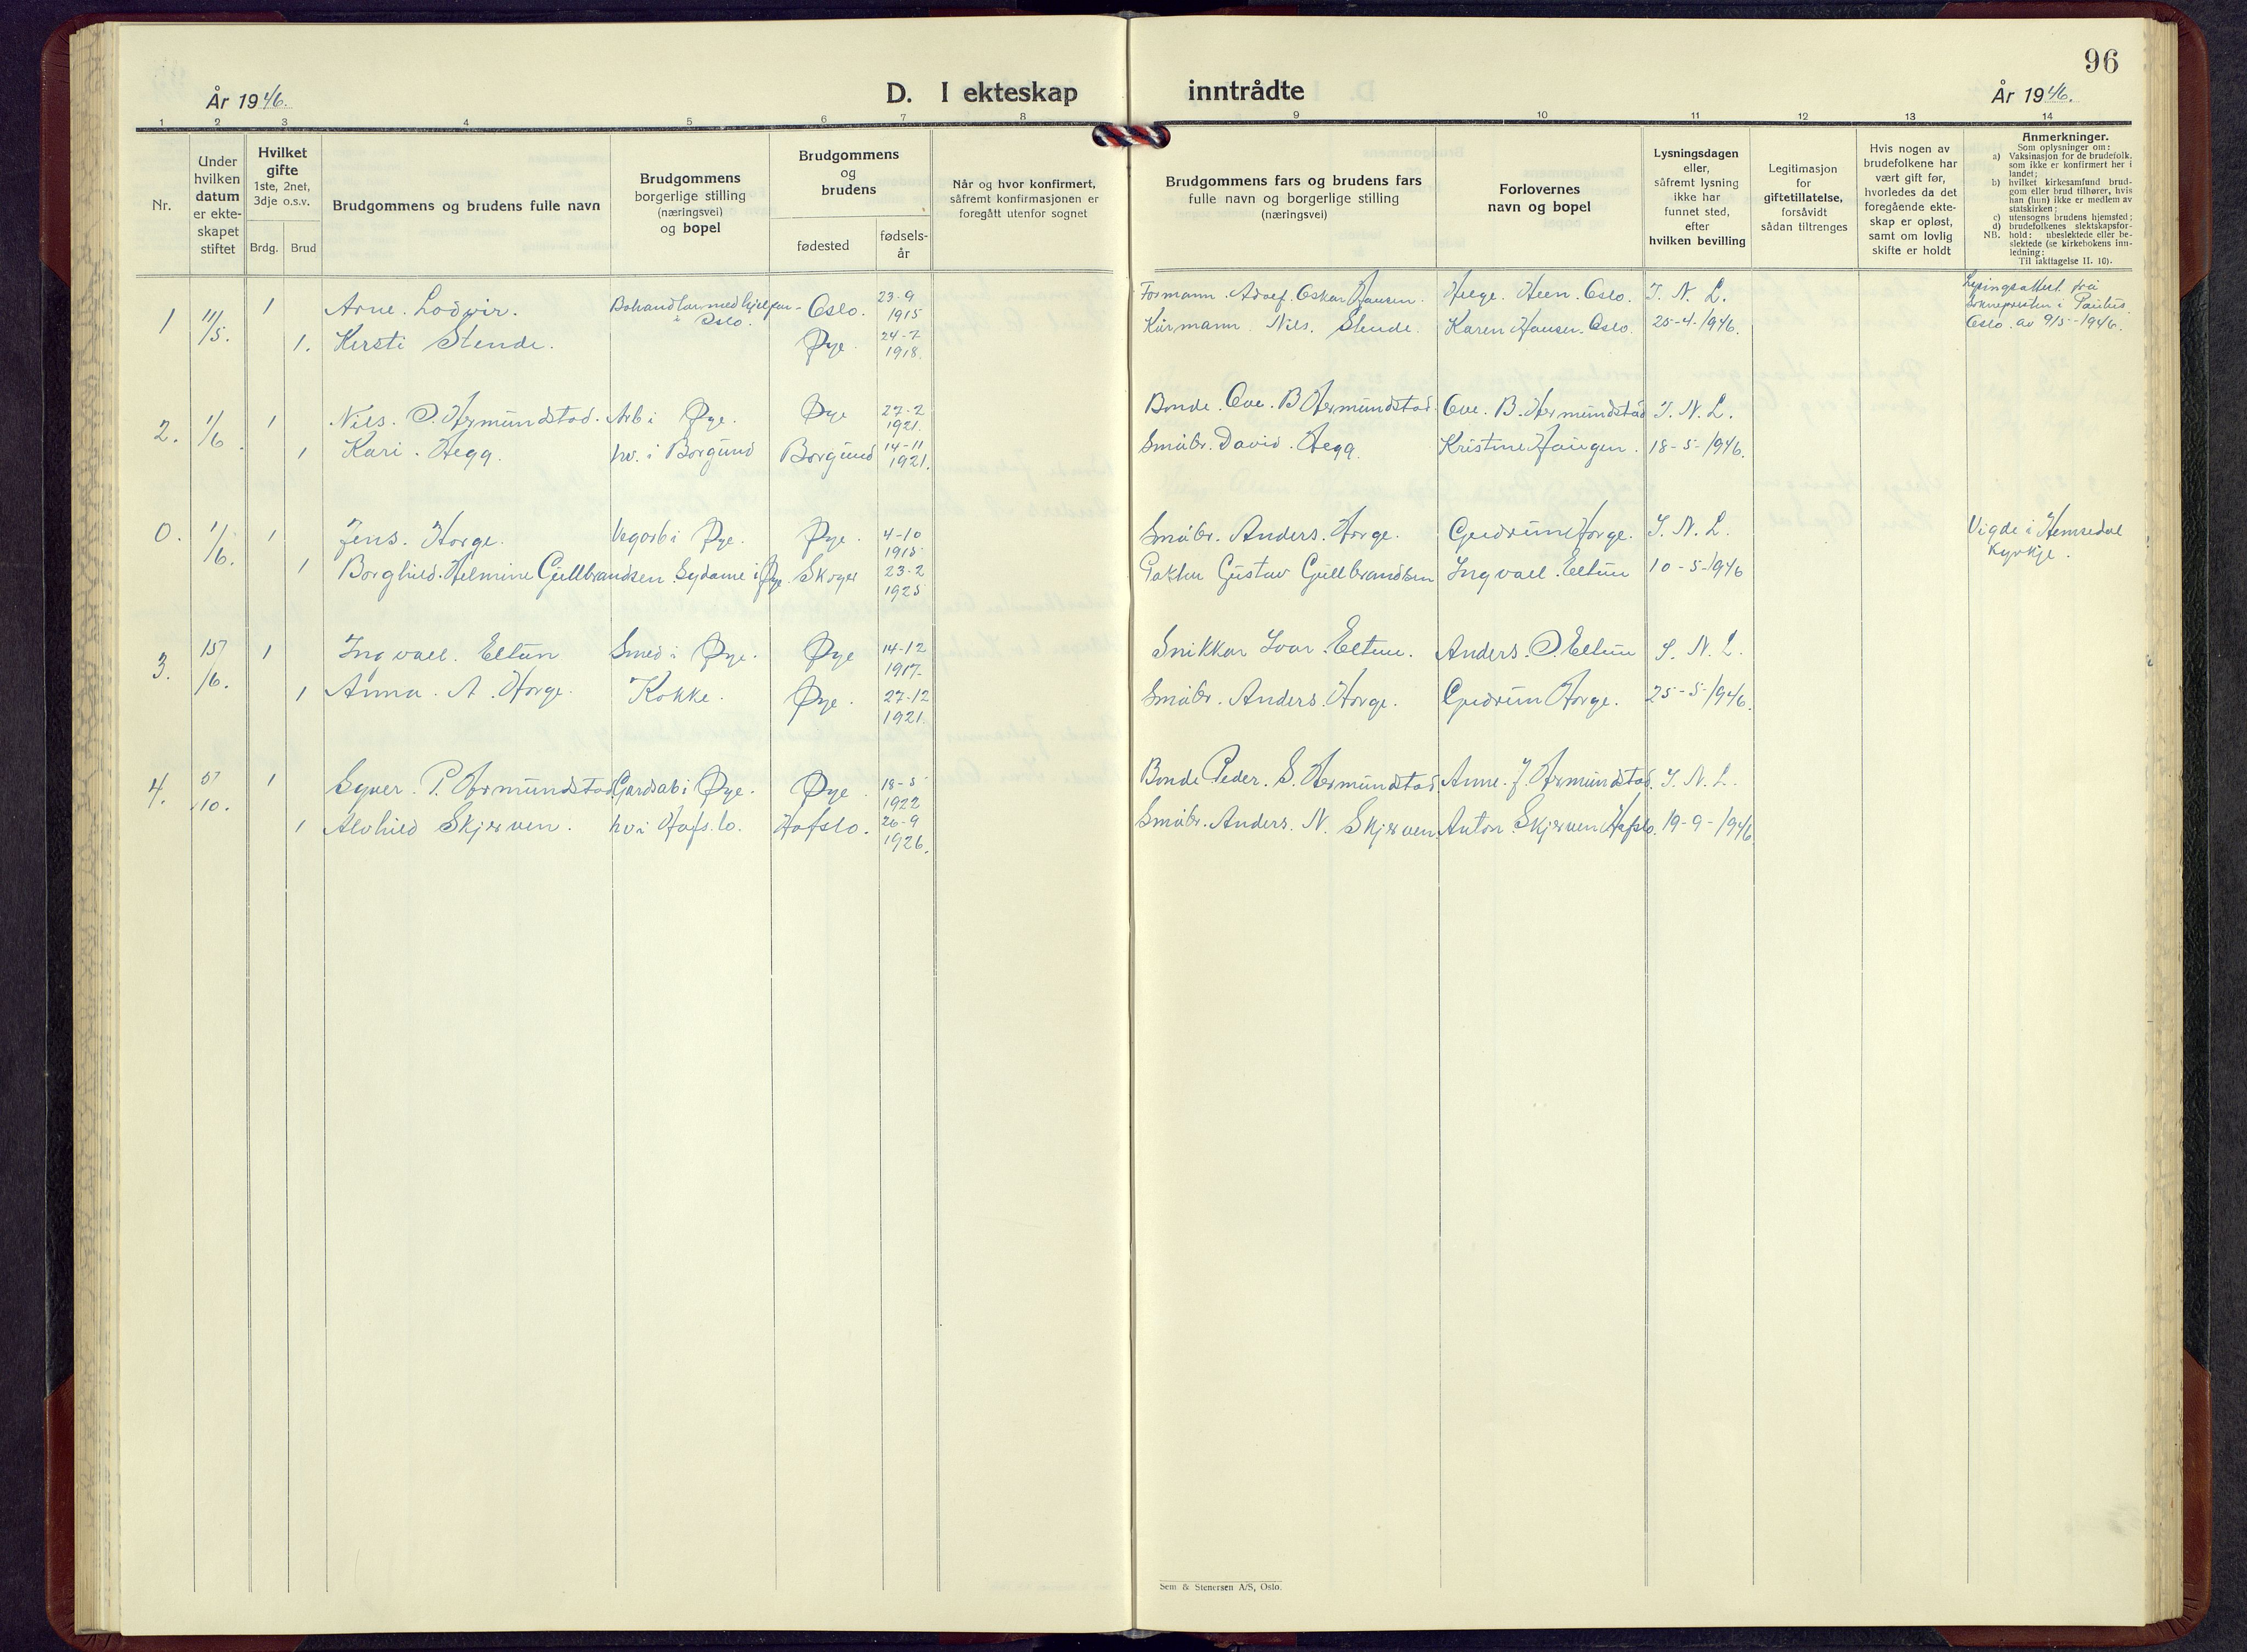 96
År 1946.
D. I ekteskap inntrådte
År 1946.
1 2 3 4 5 6 7 8 9 10 11 12 13 14
Nr.
Under
hvilken
datum
er ekte-
skapet
stiftet
Hvilket
gifte
1ste, 2net,
3dje o.s.v.
Brdg. Brud
Brudgommens og brudens fulle navn
Brudgommens
borgerlige stilling
(næringsvei)
og bopel
Brudgommens
og
brudens
fødested
fødsels-
år
Når og hvor konfirmert,
såfremt konfirmasjonen er
foregått utenfor sognet
Brudgommens fars og brudens fars
fulle navn og borgerlige stilling
(næringsvei)
Forlovernes
navn og bopel
Lysningsdagen
eller,
såfremt lysning
ikke har
funnet sted,
efter
hvilken bevilling
Legitimasjon
for
giftetillatelse,
forsåvidt
sådan tiltrenges
Hvis nogen av
brudefolkene har
vært gift før,
hvorledes da det
foregående ekte-
skap er opløst,
samt om lovlig
skifte er holdt
Anmerkninger.
Som oplysninger om:
a) Vaksinasjon for de brudefolk,
som ikke er konfirmert her i
landet;
b) hvilket kirkesamfund brud-
gom eller brud tilhører, hvis
han (hun) ikke er medlem av
statskirken;
c) utensogns brudens hjemsted;
d) brudefolkenes slektskapsfor-
NB. hold: ubeslektede eller be-
slektede (se kirkebokens inn-
ledning:
Til iakttagelse II. 10).
1 11/5. 1 Arne. Lodvir. Oslo. 23-9 1915 Formann. Adolf. Oskar Hansen. Helge. Heen. Oslo. T. N. L.
i Oslo.
1. Kersti Stende. Øye. 24-7 1918. Nils. Stende. Karen Hansen. Oslo. 25-4-1946.
Lysingsattest frå
Soknepresten i Paulus
Oslo. av 9/5-1946.
2. 1/6. 1 Nils. O. Hermundstad. Arb i Øye. Øye 27-2 1921. Bonde. Ove. B Hermundstad. Ove. B. Hermundstad T. N. L.
1 Kari. Hegg. hv. i Borgund Borgund 14-11 1921. Småbr. David. Hegg. Kristine Haugen. 18-5-1946.
0. 1/6. 1 Jens. Horge. Vegarb i Øye. Øye. 4-10 1915 Småbr. Anders. Horge. Gudrun Horge. T. N. L. Vigde i Hemsedal
Kyrkje.
1 Borghild. Helmine Gullbrandsen Sydame i Øye. Skoger 23-2 1925 Gustav Gullbrandsen Ingvall. Eltun 10-5-1946
3. 15/6. 1 Ingvall. Eltun Smed i Øye. Øye 14-12 1917. Snikkar Ivar. Eltun. Anders. O. Eltun T. N. L.
1 Anna. A. Horge. Kokke. Øye. 27-12 1921. Småbr. Anders. Horge. Gudrun Horge. 25-5-1946.
4. 5/10. 1 Syver. P. Hermundstad. Gardsab i Øye. Øye. 18-5 1922 Bonde Peder. S. Hermundstad. Anne. J. Hermundstad. T. N. L.
1 Alvhild Skjerven. hv i Hafslo. Hafslo. 26-9 1926. Småbr. Anders. N. Skjerven. Anton Skjerven Hafslo. 19-9-1946
Sem & Stenersen A/S, Oslo.